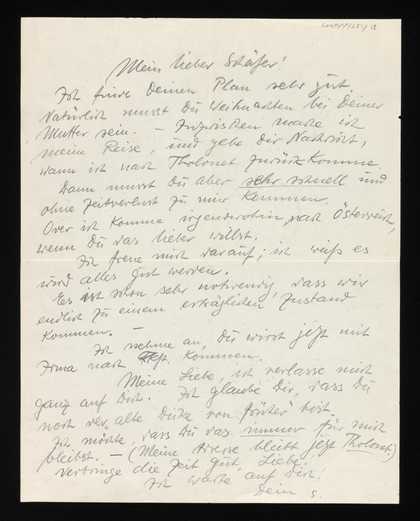 Mein lieber Schäfer!
Ich finde Deinen Plan sehr gut.
Natürlich musst Du Weihnachten bei Deiner
Mutter sein. — Inzwischen mache ich
meine Reise, und gebe Dir Nachricht,
wann ich nach Tholonet zurückkomme.
Dann musst Du aber sehr schnell und
ohne Zeitverlust zu mir kommen.
Oder ich komme irgendwohin nach Österreich,
wenn Du das lieber willst.
Ich freue mich darauf; ich weiß es
wird alles gut werden.
Es ist schon sehr notwendig, dass wir
endlich zu einem erträglichen Zustand
kommen. —
Ich nehme an, Du wirst jetzt mit
Irma nach kommen.
Meine Liebe, ich verlasse mich
ganz auf Dich. Ich glaube Dir, dass Du
noch der alte von früher bist.
Ich möchte, dass Du das immer für mich
bleibst. — (Meine Adresse bleibt jetzt Tholonet)
Verbringe die Zeit gut, Liebe,
Ich warte auf Dich!
Dein S.